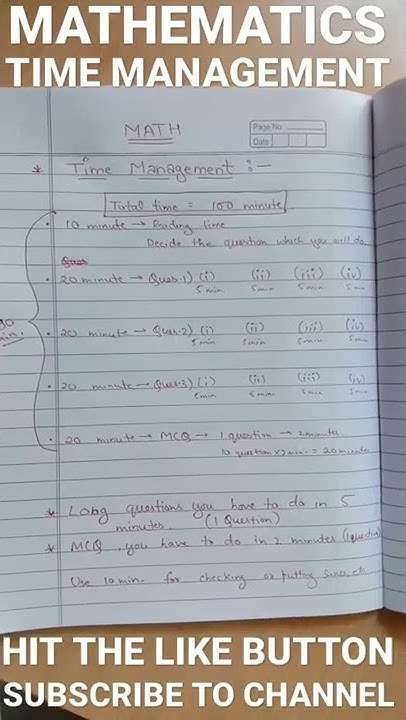 MATHEMATICS
TIME MANAGEMENT
MATH
Page No.
Date
* Time Management :-
Total time = 100 minute
• 10 minute → Reading time
Decide the question which you will do.
• 20 minute → Ques-1) (i) (ii) (iii) (iv)
5 min 5 min 5 min 5 min
• 20 minute → Ques-2) (i) (ii) (iii) (iv)
5 min 5 min 5 min 5 min
• 20 minute → Ques-3) (i) (ii) (iii) (iv)
5 min 5 min 5 min 5 min
• 20 minute → MCQ → 1 question → 2 minutes
10 question × 2 min. = 20 minutes
* Long questions you have to do in 5
minutes. (1 Question)
* MCQ, you have to do in 2 minutes (1 question)
Use 10 min. for checking or putting etc
HIT THE LIKE BUTTON
SUBSCRIBE TO CHANNEL